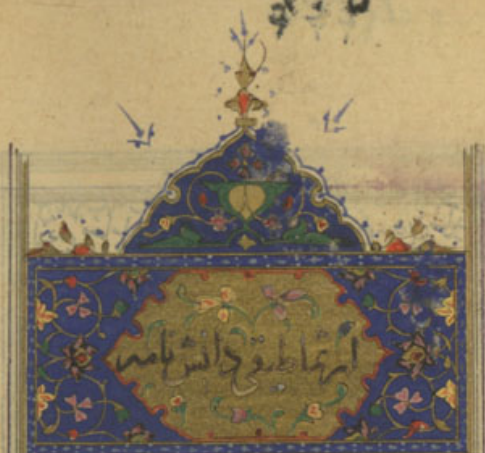 ارثماطیقی دانش نامه